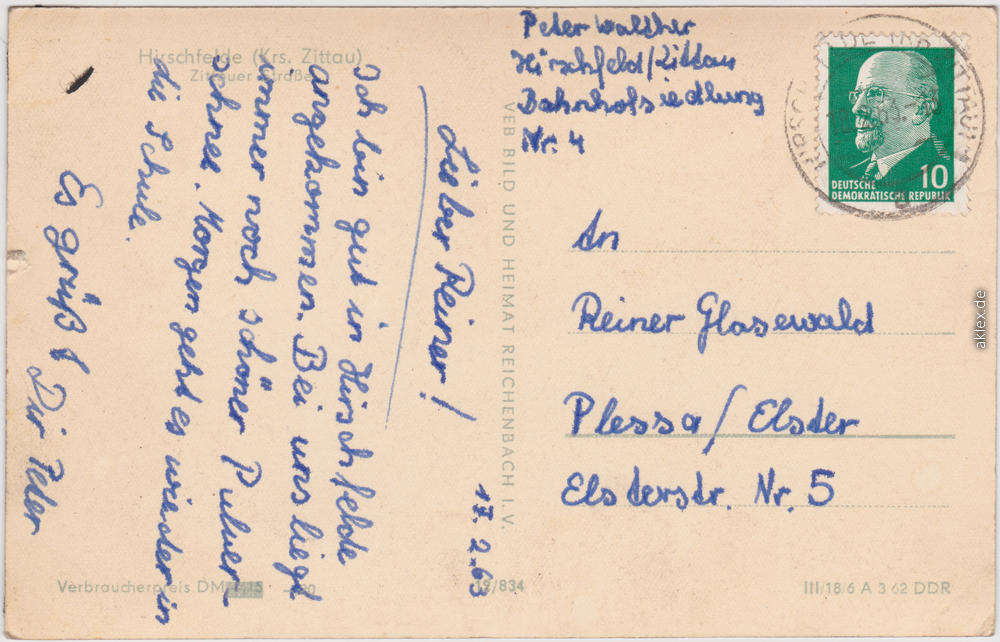 Hirschfelde (Krs. Zittau)
Zittauer Straße
17. 2. 63
Lieber Reiner!
Ich bin gut in Hirschfelde
angekommen. Bei uns liegt
immer noch schöner Pulver-
schnee. Morgen geht es wieder in
die Schule.
Es grüßt
Dir Peter
VEB BILD UND HEIMAT REICHENBACH I. V.
Peter Walther
Hirschfeld/Zittau
Bahnhofsiedlung
Nr. 4
DEUTSCHE
DEMOKRATISCHE REPUBLIK
10
An
Reiner Glasewald
Plessa/Elster
Elsterstr. Nr. 5
Verbraucherpreis DM
19/834
III/18/6 A 3 62 DDR
aklex.de